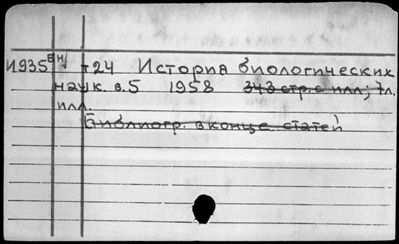 И935 Бн т24 История биологических
наук. в.5 1958 343 стр. с илл.; 7л.
илл.
Библиогр. в конце статей